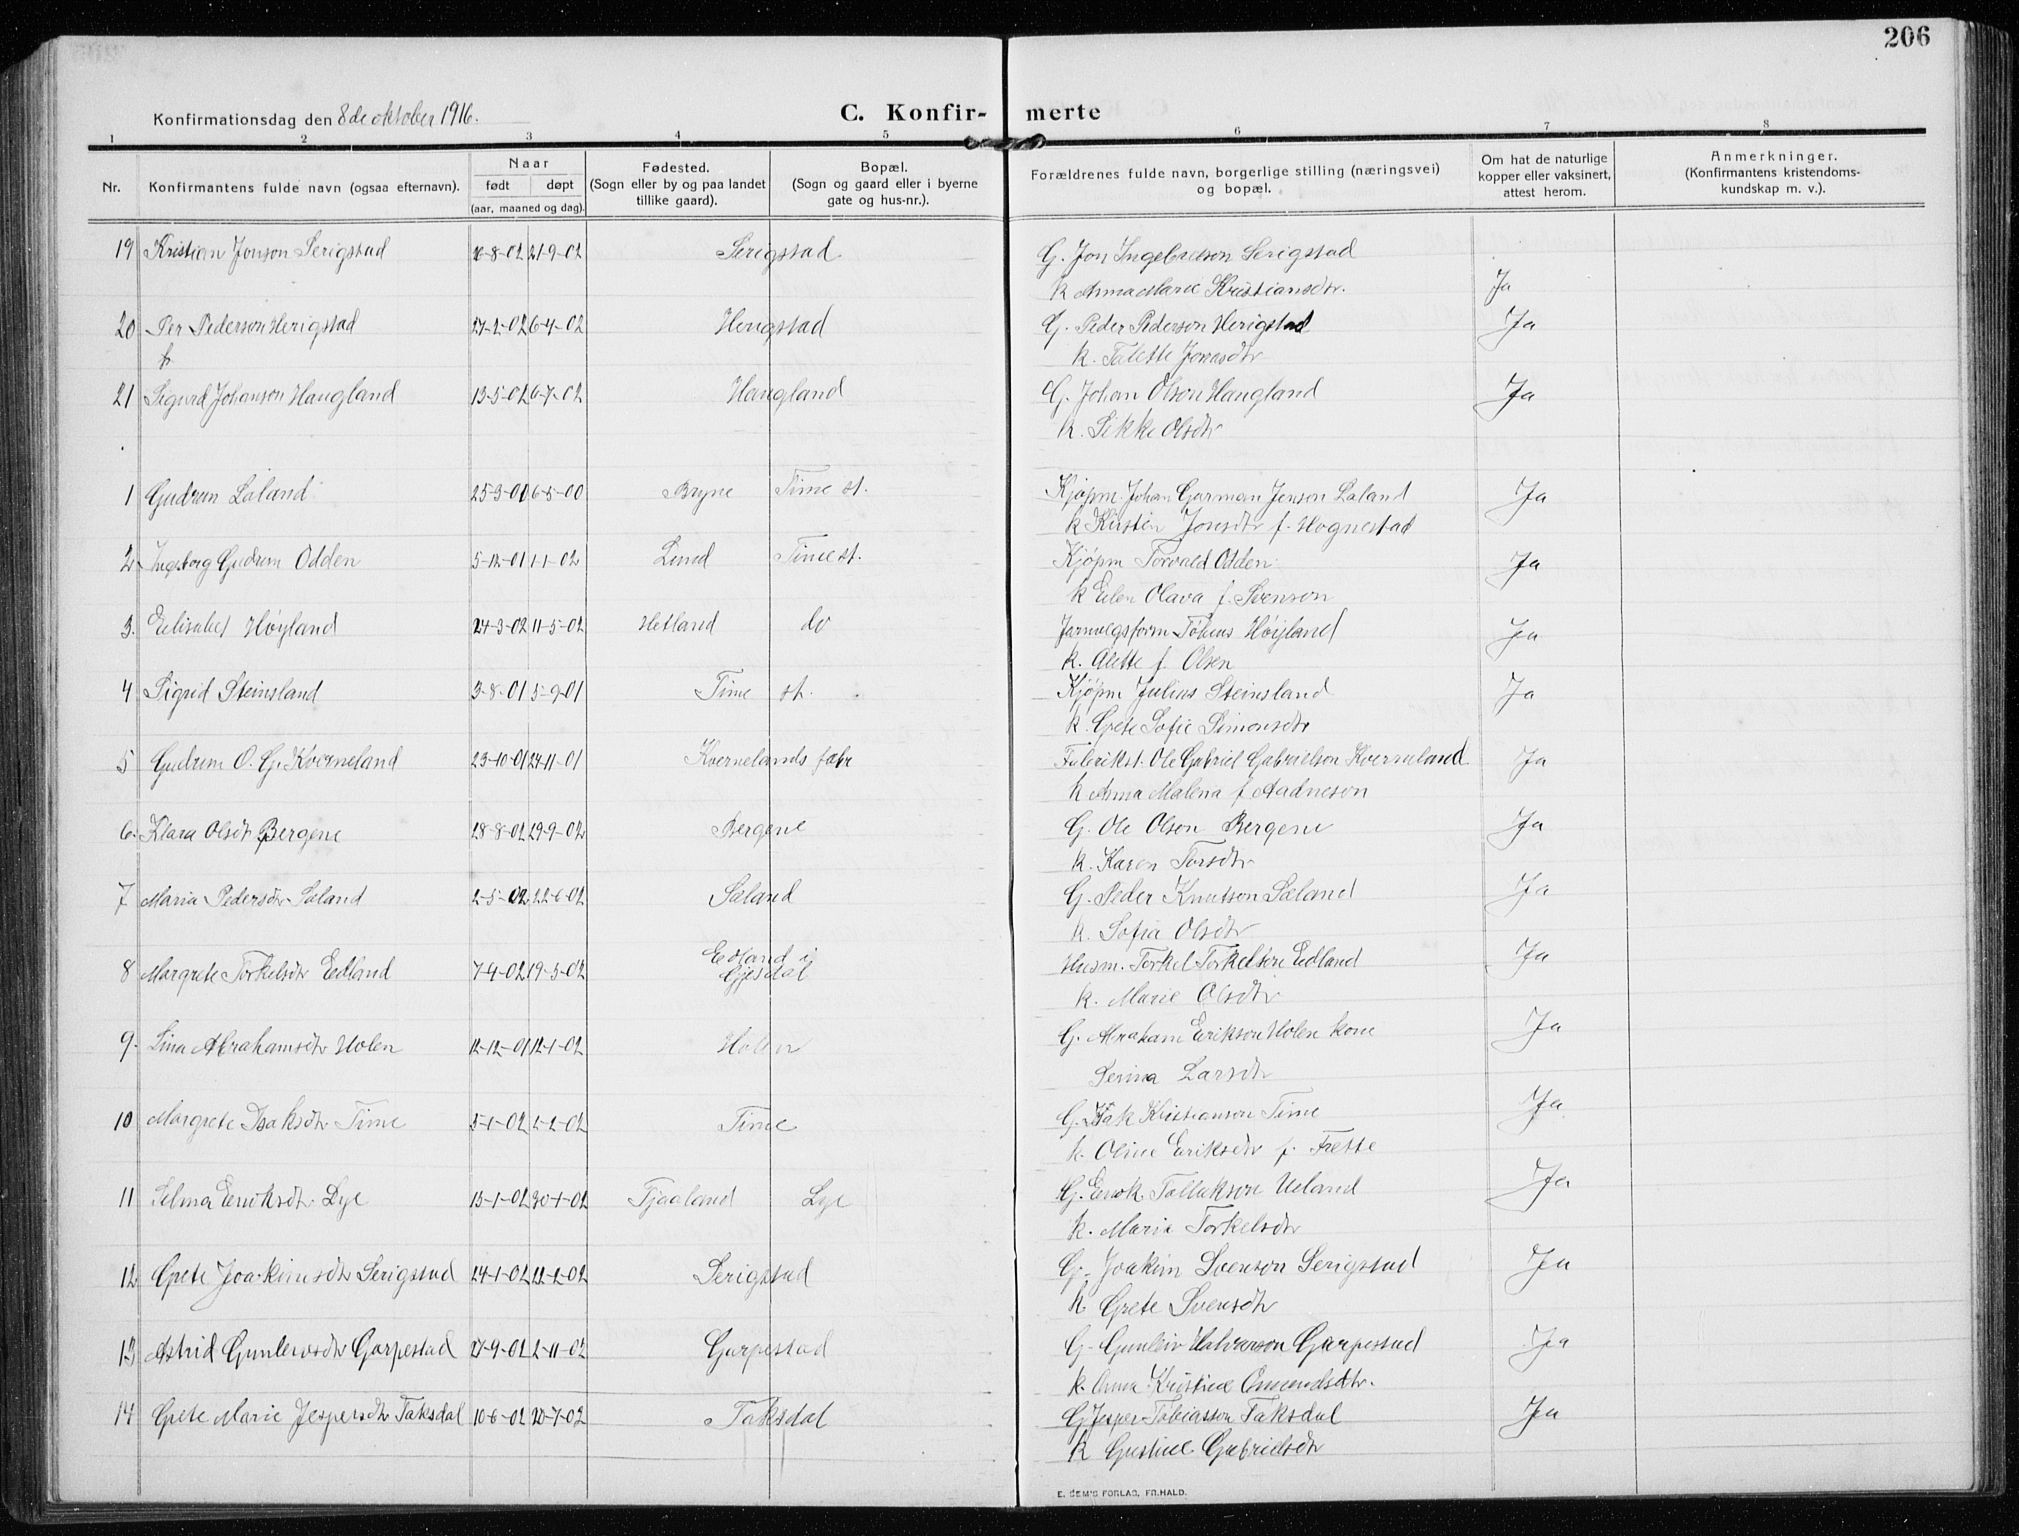 206
Konfirmationsdag den 8de oktober 1916.
C. Konfir- merte
1 2 3 4 5 6 7 8
Nr. Konfirmantens fulde navn (ogsaa efternavn). Naar født døpt (aar, maaned og dag). Fødested. (Sogn eller by og paa landet tillike gaard). Bopæl. (Sogn og gaard eller i byerne gate og hus-nr.). Forældrenes fulde navn, borgerlige stilling (næringsvei) og bopæl. Om hat de naturlige kopper eller vaksinert, attest herom. Anmerkninger. (Konfirmantens kristendoms- kundskap m. v.).
19 Kristian Jonson Serigstad 21-9-02 Serigstad G. Jon Ingebretson Serigstad
k Anna Marie Kristiansdtr. Ja
20 Per Pederson Herigstad Herigstad G. Peder Pederson Herigstad Ja
k. Talette Jonasdtr
21 Sigurd Johanson Haugland 13-5-02 6-7-02 Haugland G. Johan Olson Haugland Ja
k. Sikke Olsdtr
1 Gudrun Laland 6-5-00 Bryne Time st. Kjøpm. Johan Garman Jenson Laland Ja
k Kirsten Jonsdtr f. Hognestad
2 Ingeborg Gudrun Odden 5-12-01 1-1-02 Lund Time st. Kjøpm Torvald Odden Ja
k Elen Olava f. Svenson
3. Elisabet Høyland 24-3-02 11-5-02 Hetland do Jarnvegsform. Tobias Høyland Ja
k. Alette f. Olsen
4 Sigrid Steinsland 3-8-01 5-9-01 Time st. Kjøpm Julius Steinsland Ja
k. Grete Sofie Simonsdtr
5 Gudrun O. G. Kverneland 23-10-01 24-11-01 Kvernelands fabr Fabrikst. Ole Gabriel Gabrielson Kverneland Ja
k Anna Malena f Aadneson
6. Klara Olsdt Bergene 28-8-02 29-9-02 Bergene G. Ole Olson Bergene Ja
k. Karen Torsdtr
7 Maria Pedersdtr Sæland 2-5-02 22-6-02 Sæland G. Peder Knutson Sæland Ja
k. Sofia Olsdtr
8 Margrete Torkelsdtr Edland 7-4-02 19-5-02 Edland i Gjesdal Husm. Torkel Torkelson Edland Ja
k. Marie Olsdtr
9. Lina Abrahamsdtr Holen 12-12-01 12-1-02 Holen G. Abraham Erikson Holen kone Ja
Serina Larsdtr
10 Margrete Isaksdtr Time 5-1-02 2-2-02 Time G. Isak Kristianson Time Ja
k. Oline Eriksdtr f. Frette
11 Selma Eriksdtr Lye 30-1-02 Tjaaland Lye G. Erik Tollakson Ueland Ja
k. Maria Torkelsdtr
12 Grete Joakimsdtr Serigstad 24-1-02 Serigstad G. Joakim Svenson Serigstad Ja
k Grete Svensdtr
13 Astrid Gunleivsdtr Garpestad 2-11-02 Garpestad G. Gunleiv Halvarson Garpestad Ja
k. Anna Kristine Omundsdtr.
14 Grete Marie Jespersdtr Taksdal 10-6-02 20-7-02 Taksdal G Jesper Tobiasson Taksdal Ja
k Gustine Gabrielsdtr
E. SEM'S FORLAG, FR.HALD.